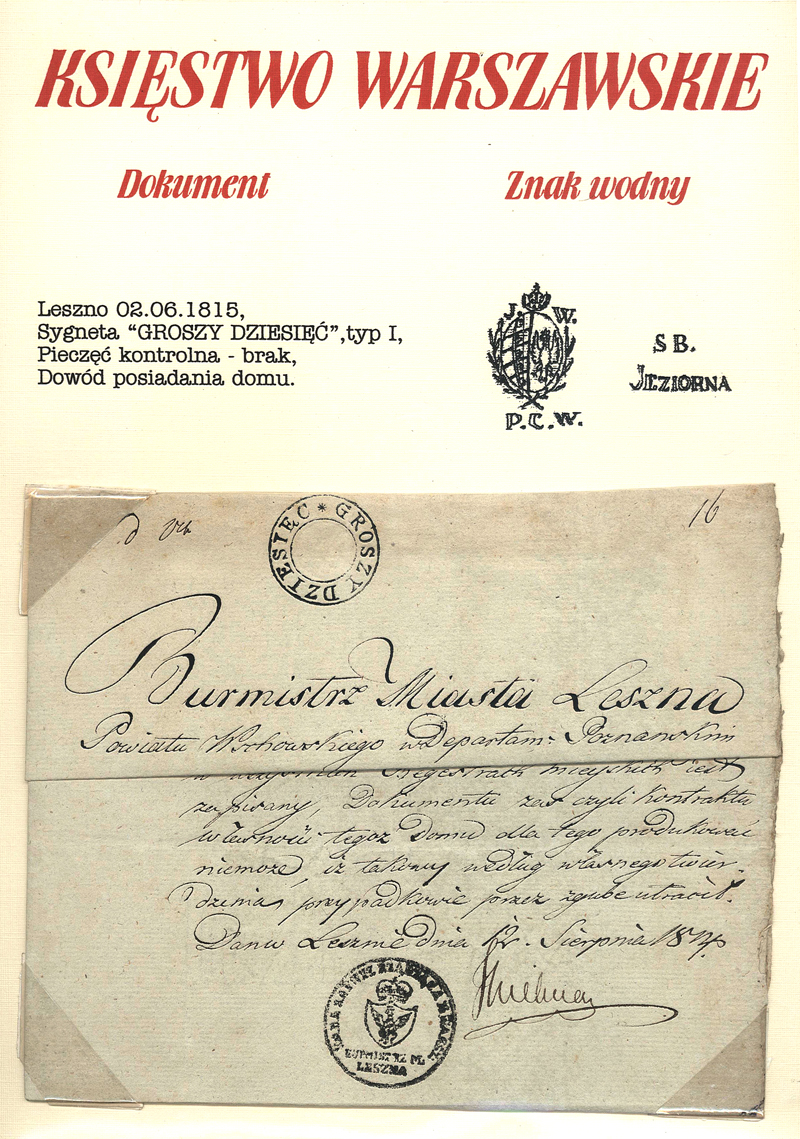 KSIĘSTWO WARSZAWSKIE
Dokument
Znak wodny
Leszno 02.06.1815,
Sygneta “GROSZY DZIESIĘĆ”,typ I,
Pieczęć kontrolna - brak,
Dowód posiadania domu.
J. W.
P.C.W.
SB.
JEZIORNA
16
GROSZY DZIESIĘC *
Burmistrz Miasta Leszna
Powiatu Wschowskiego w Departam: Poznanskim
Regestrach mieyskich iest
zapisany, Dokumentu zaś czyli kontraktu
własności tegoz Domu dla tego produkować
niemoże, iz takowy według własnego twier-
dzenia, przypadkowie przez zgube utracił.
Dan w Lesznie dnia 12. Sierpnia 1814.
BURMISTRZ M.
LESZNA